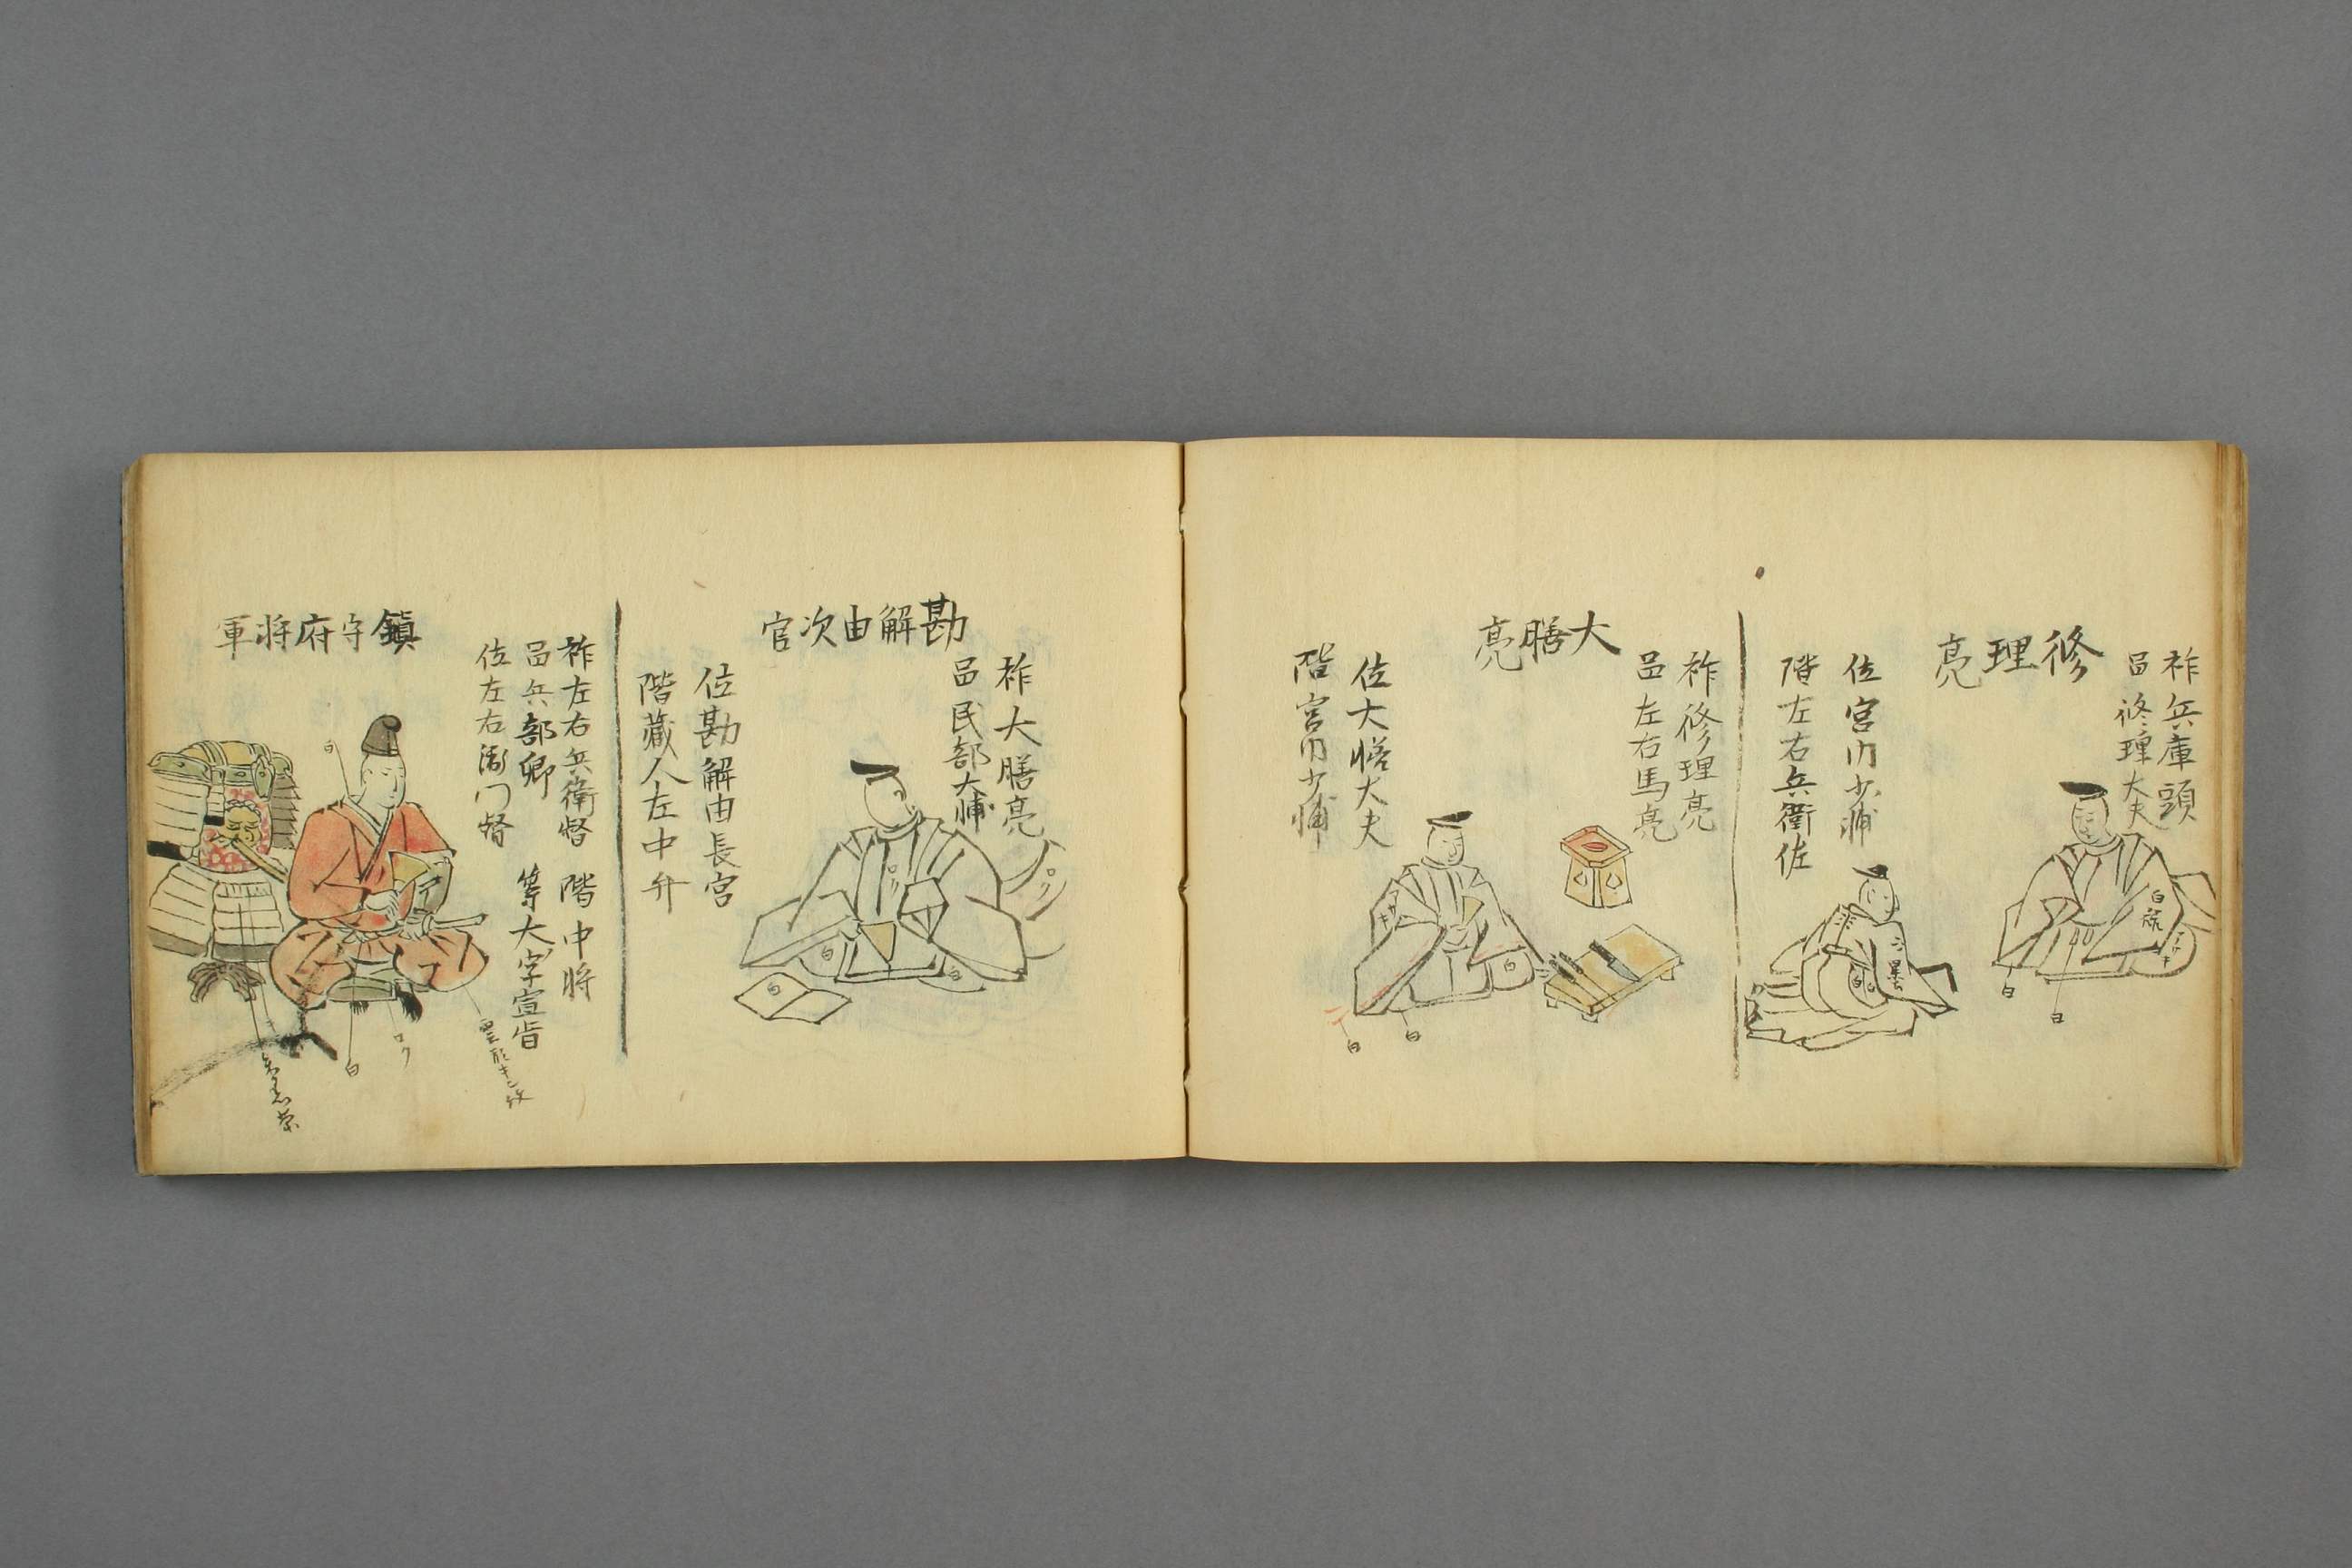 修理亮
祚兵庫頭
品修理大夫
位宮内少浦
階左右兵衛佐
白
白
白
大膳亮
祚修理亮
品左右馬亮
位大膳大夫
階宮内少浦
白
白
白
勘解由次官
祚大膳亮
品民部大浦
位勘解由長官
階蔵人左中弁
白
白
白
鎮守府将軍
祚左右兵衛督
階中将
品兵部卿
等大字宣旨
位左右衛門督
白
白
ロク